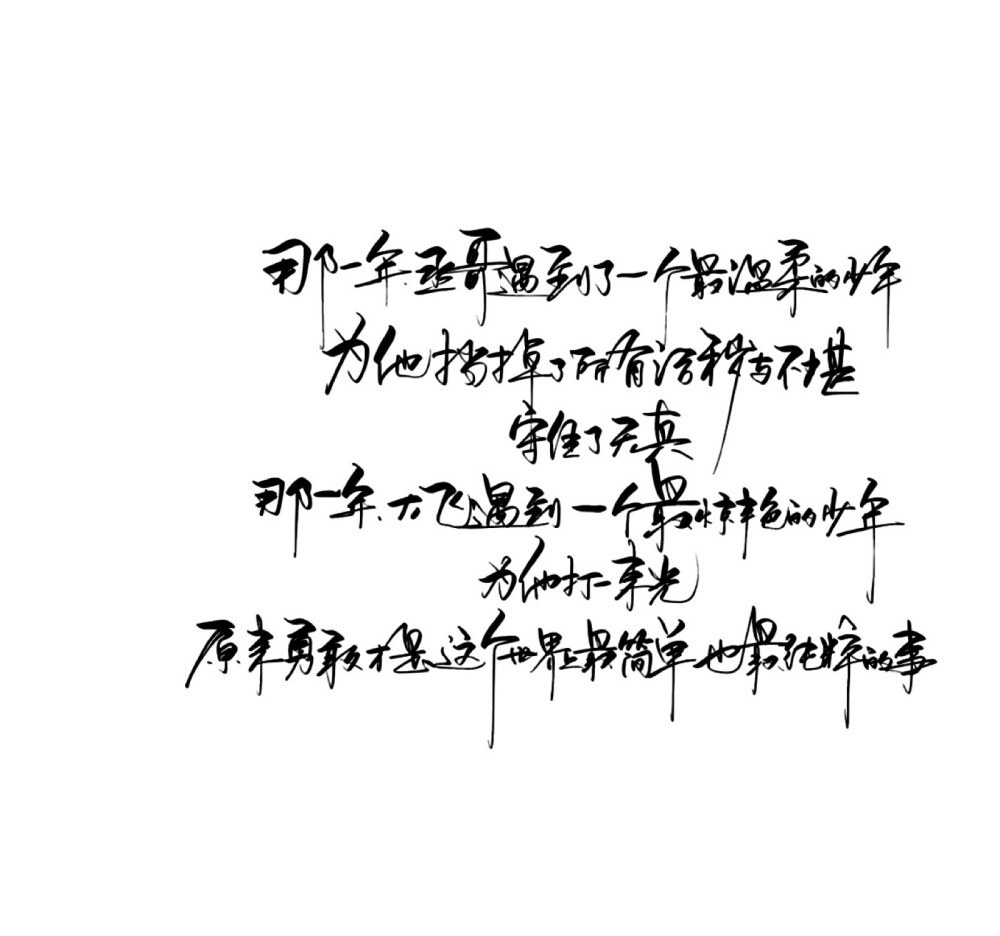 那一年.丞哥遇到了一个最温柔的少年
为他挡掉了所有污秽与不堪
守住了天真
那一年.大飞遇到一个最惊艳的少年
为他打一束光
原来勇敢才是这个世界上最简单也最纯粹的事